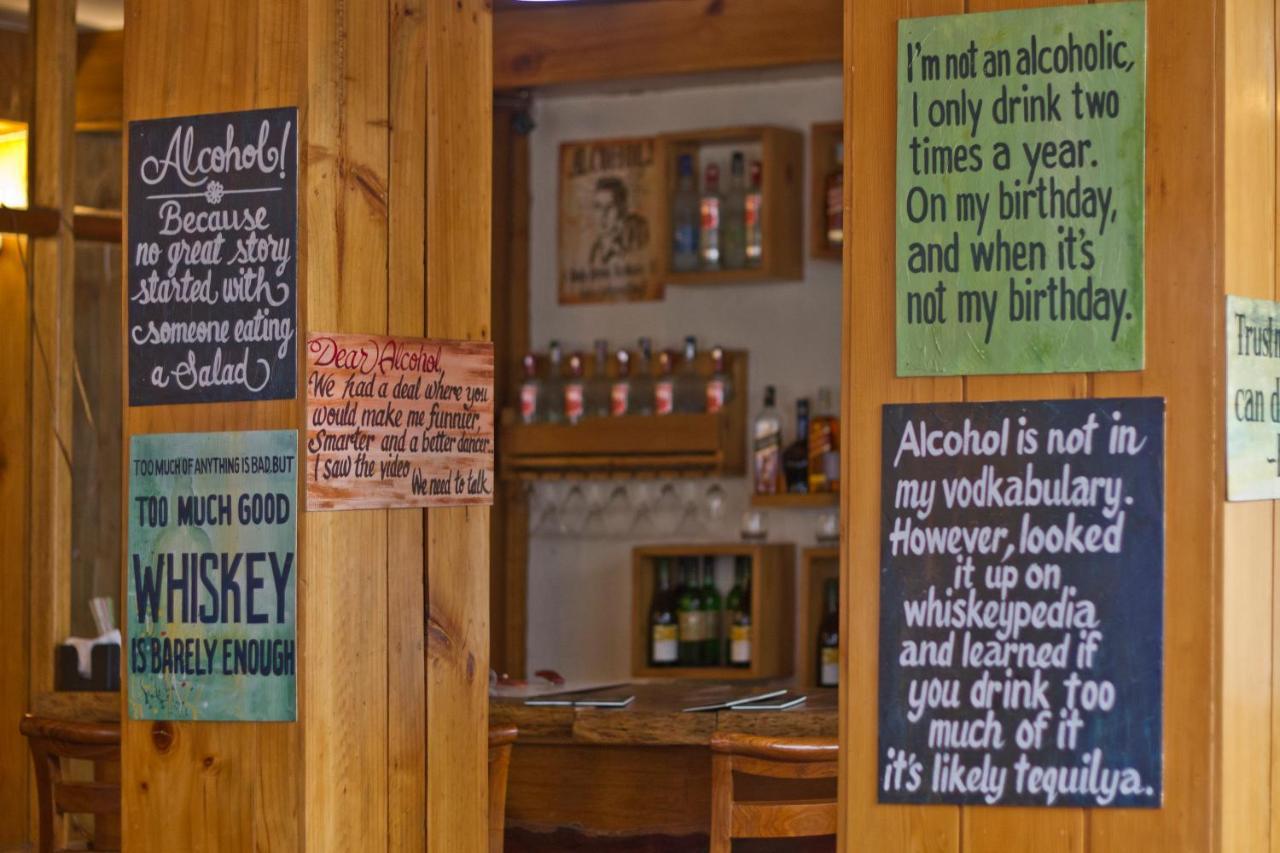 Alcohol!
Because
no great story
started with
someone eating
a Salad
TOO MUCH OF ANYTHING IS BAD, BUT
TOO MUCH GOOD
WHISKEY
IS BARELY ENOUGH
Dear Alcohol,
We had a deal where you
would make me funnier
Smarter and a better dancer..
I saw the video
We need to talk.
ALCOHOL!
I'm not an alcoholic,
I only drink two
times a year.
On my birthday,
and when it's
not my birthday.
Alcohol is not in
my vodkabulary.
However, looked
it up on
whiskeypedia
and learned if
you drink too
much of it
it's likely tequilya.
can